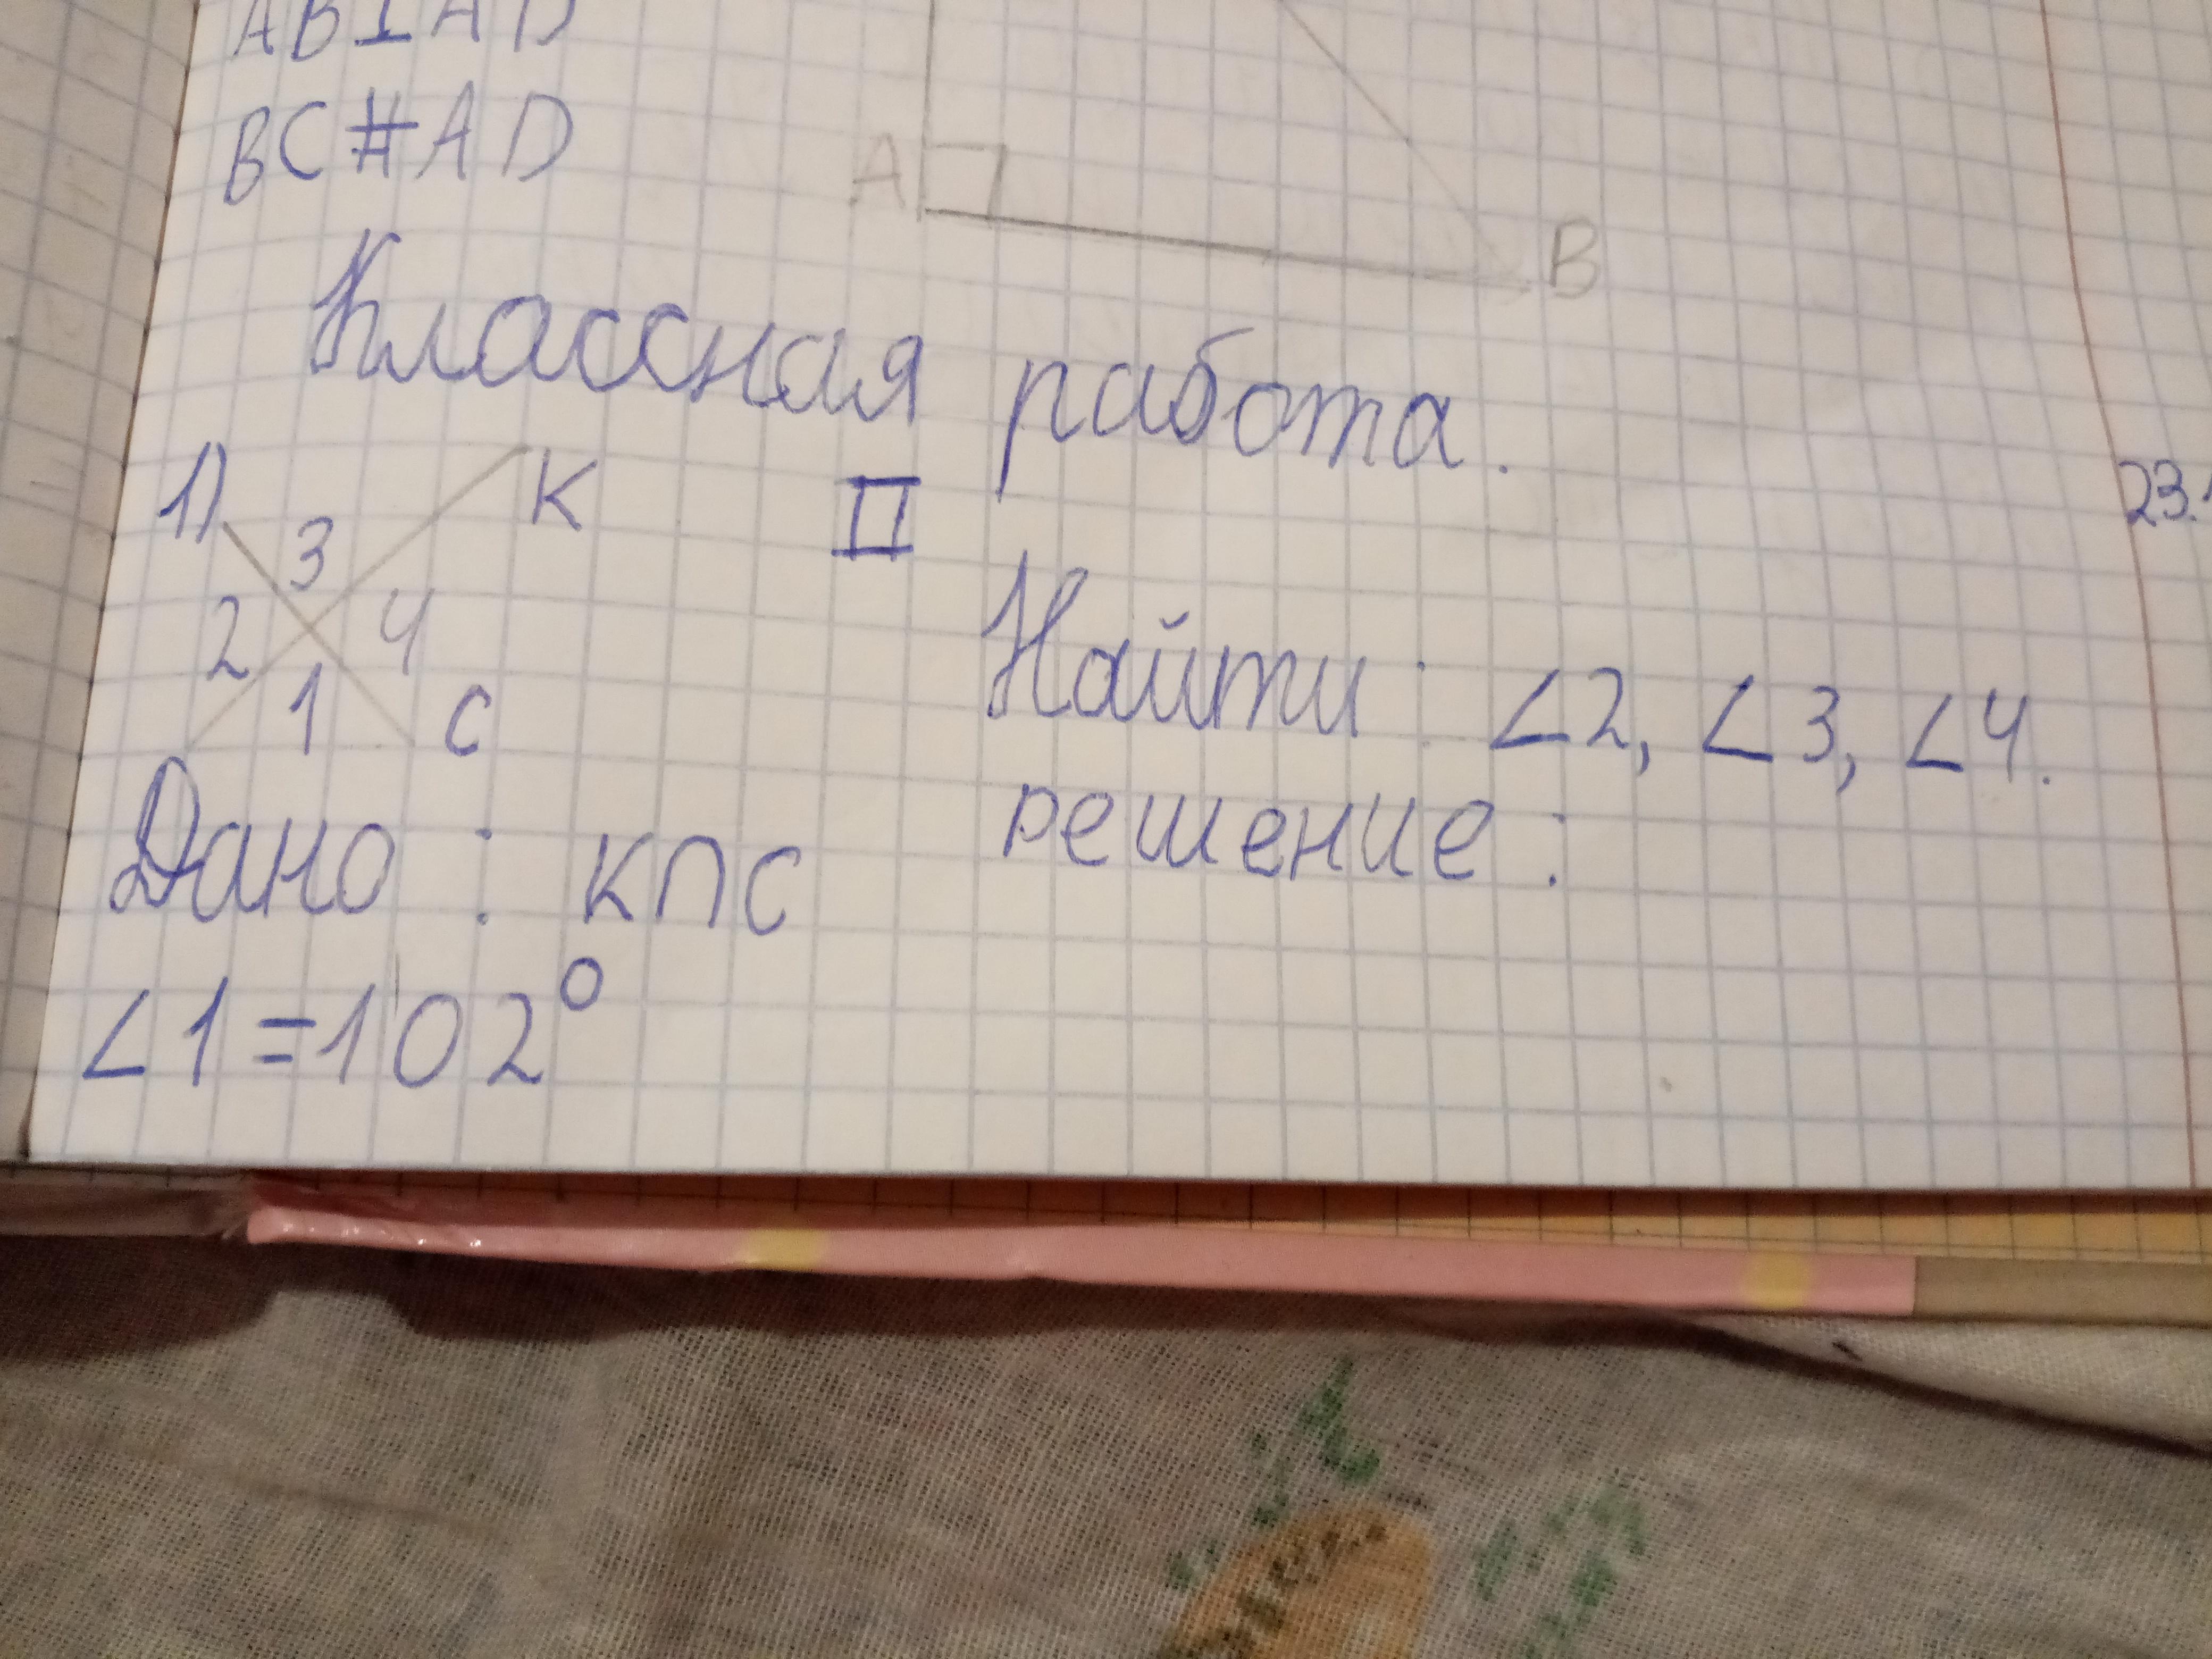 AB⊥AD
BC∦AD
A
B
Классная работа.
1)
К
II
23.
3
2
4
1
с
Найти: ∠2, ∠3, ∠4.
решение:
Дано: к∩с
∠1=102°